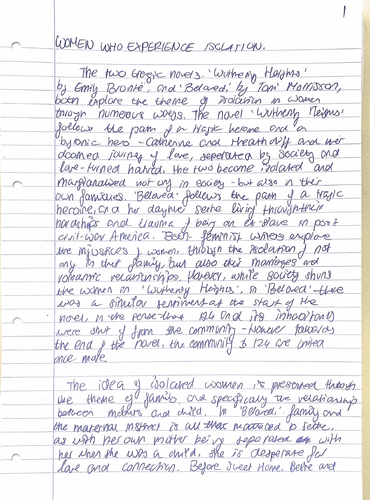 1
WOMEN WHO EXPERIENCE ISOLATION.
The two tragic novels, 'Wuthering Heights'
by Emily Bronté, and 'Beloved', by Toni Morrisson,
both explore the theme of isolation in women
through numerous ways. The novel 'Wuthering Heights'
follows the path of a tragic heroine and a
byronic hero - Catherine and Heathcliff and their
doomed journey of love, seperated by society and
love-turned hatred. The two become isolated and
marginalised not only in society - but also in their
own families. 'Beloved' follows the path of a tragic
heroine, and her daughter Sethe living through their
hardships and trauma of being an ex-slave in post
civil-war America. Both feminist writers explore
the injustices of women, through the isolation of not
only in their family, but also their marriages and
romantic relationships. However, while society shuns
the women in 'Wuthering Heights', in 'Beloved' there
was a similar sentiment at the start of the
novel, in the sense that 124 and its inhabitants
were shut off from the community - however towards
the end of the novel, the community & 124 are united
once more.
The idea of isolated women is presented through
the theme of family, and specifically the relationship
between mothers and child. In 'Beloved', family and
the maternal instinct is all that mattered to Sethe,
as with her own mother being seperated with
her when she was a child, she is desperate for
love and connection. Before Sweet Home, and